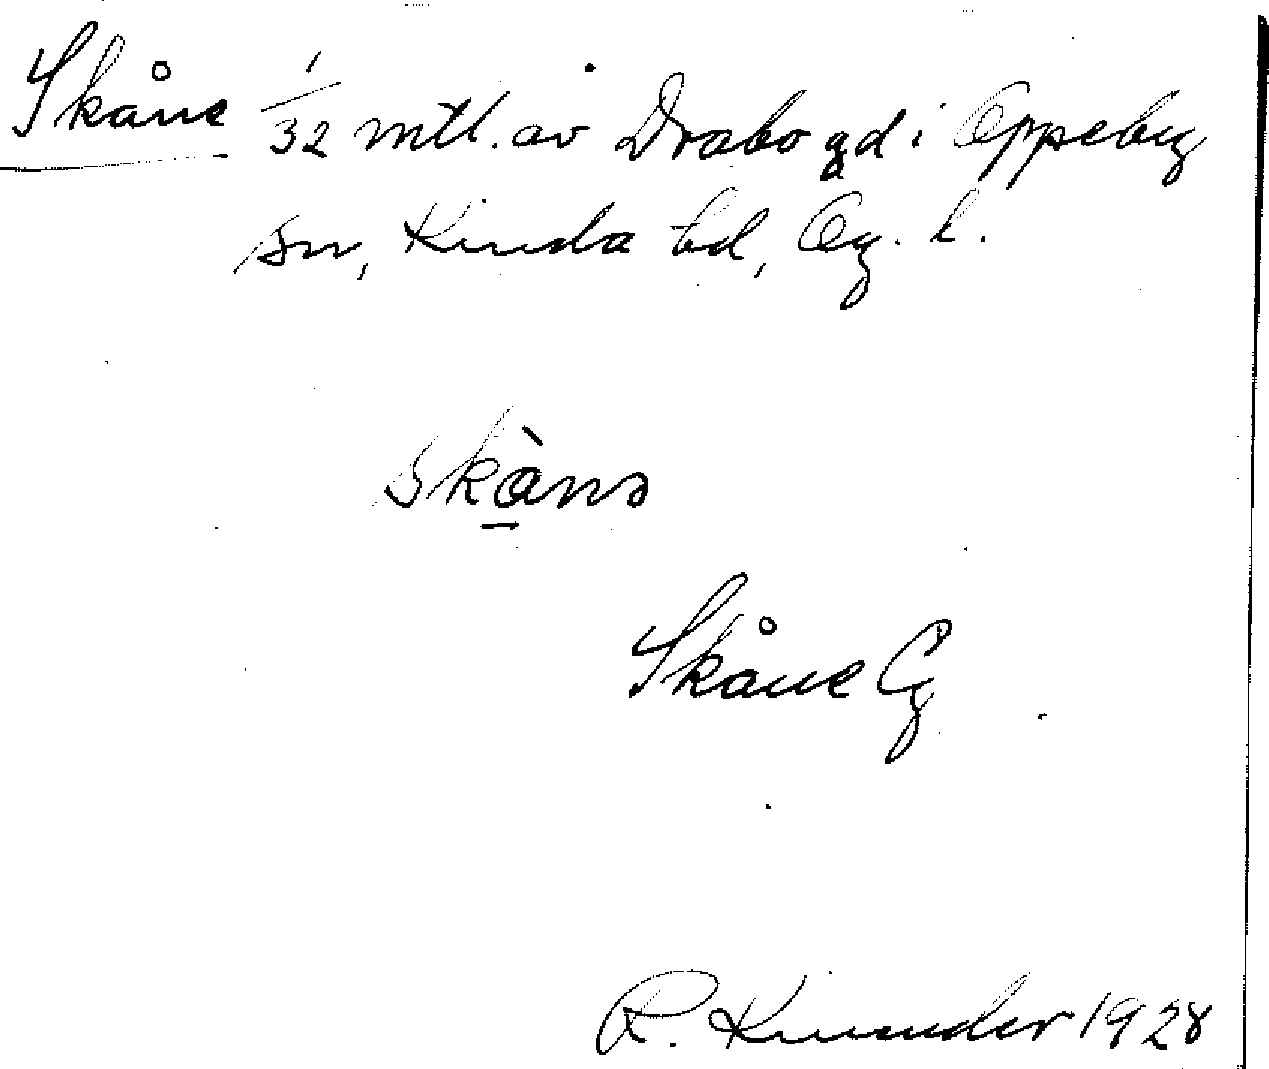 Skåne 1/32 mtl. av Drabo gd i Oppeby
sn, Kinda hd, Ög. l.
skànə
Skåne Cg
R. Kinander 1928